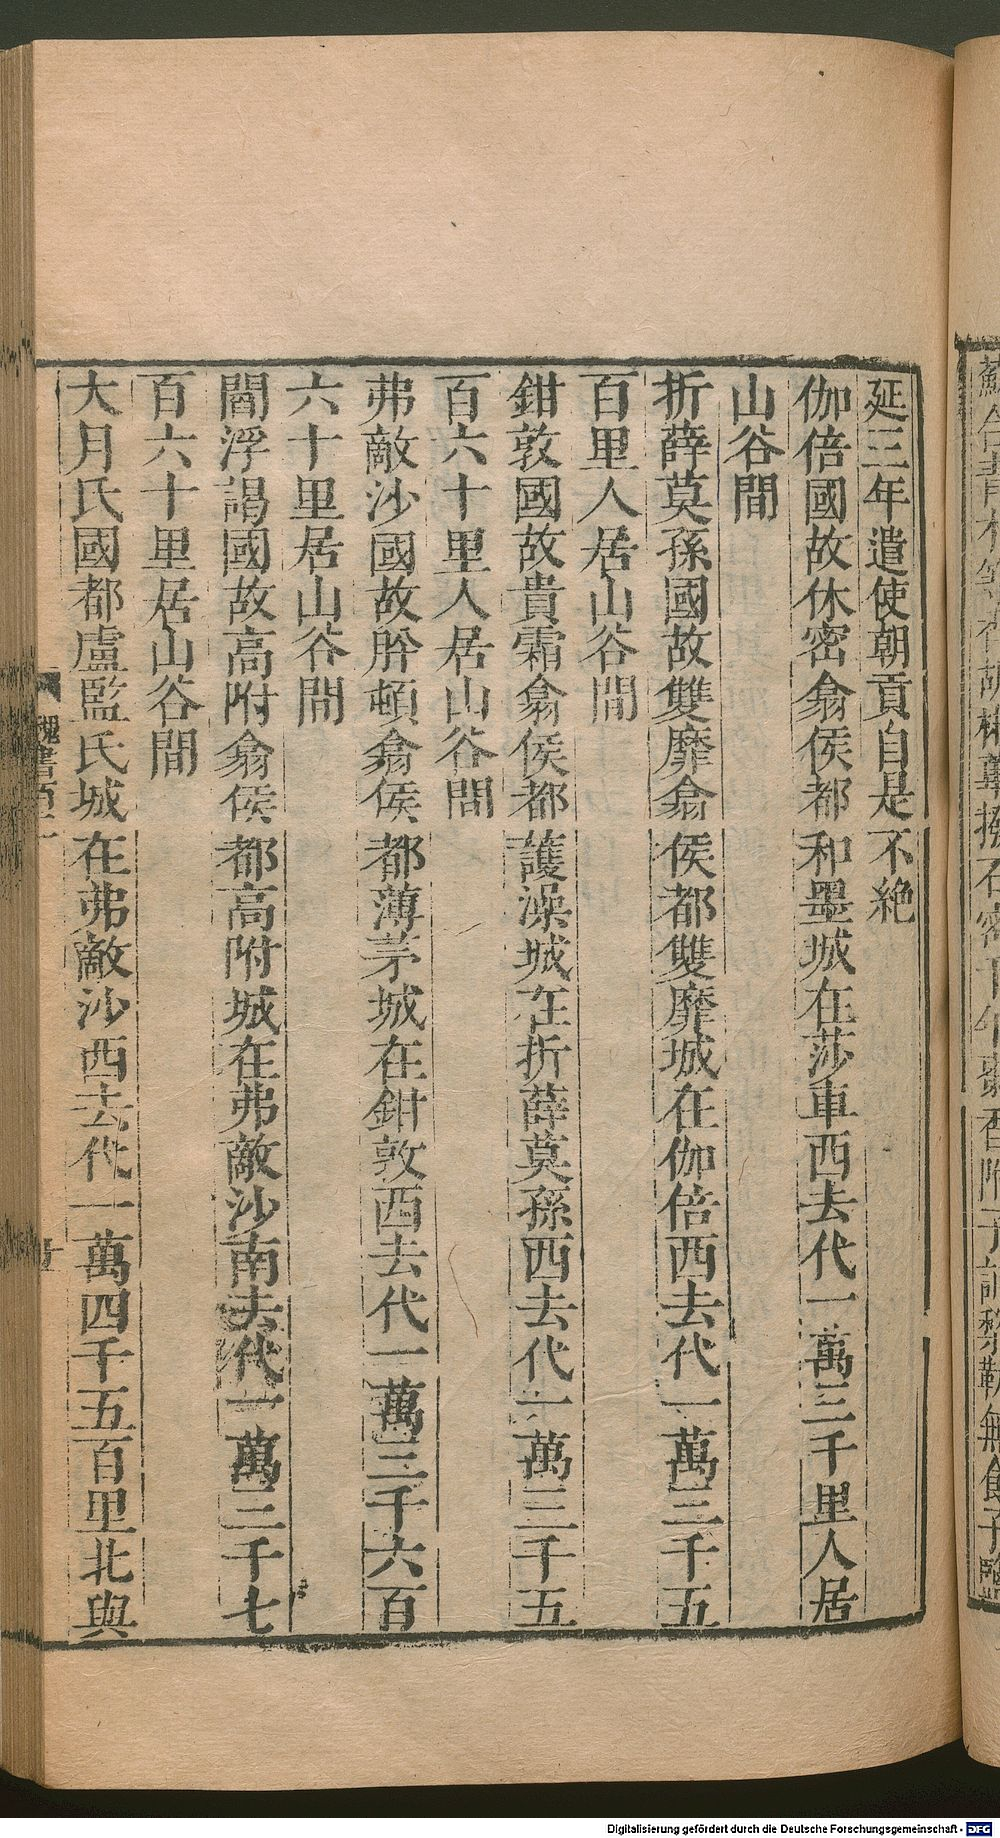 延三年遣使朝貢自是不絶
伽倍國故休密翕侯都和墨城在莎車西去代一萬三千里人居
山谷間
折薛莫孫國故雙靡翕侯都雙靡城在伽倍西去代一萬三千五
百里人居山谷間
鉗敦國故貴霜翕侯都護澡城在折薛莫孫西去代一萬三千五
百六十里人居山谷間
弗敵沙國故肸頓翕侯都薄茅城在鉗敦西去代一萬三千六百
六十里居山谷間
閻浮謁國故高附翕侯都高附城在弗敵沙南去代一萬三千七
百六十里居山谷間
大月氏國都盧監氏城在弗敵沙西去代一萬四千五百里北與
魏書百二
Digitalisierung gefördert durch die Deutsche Forschungsgemeinschaft - DFG